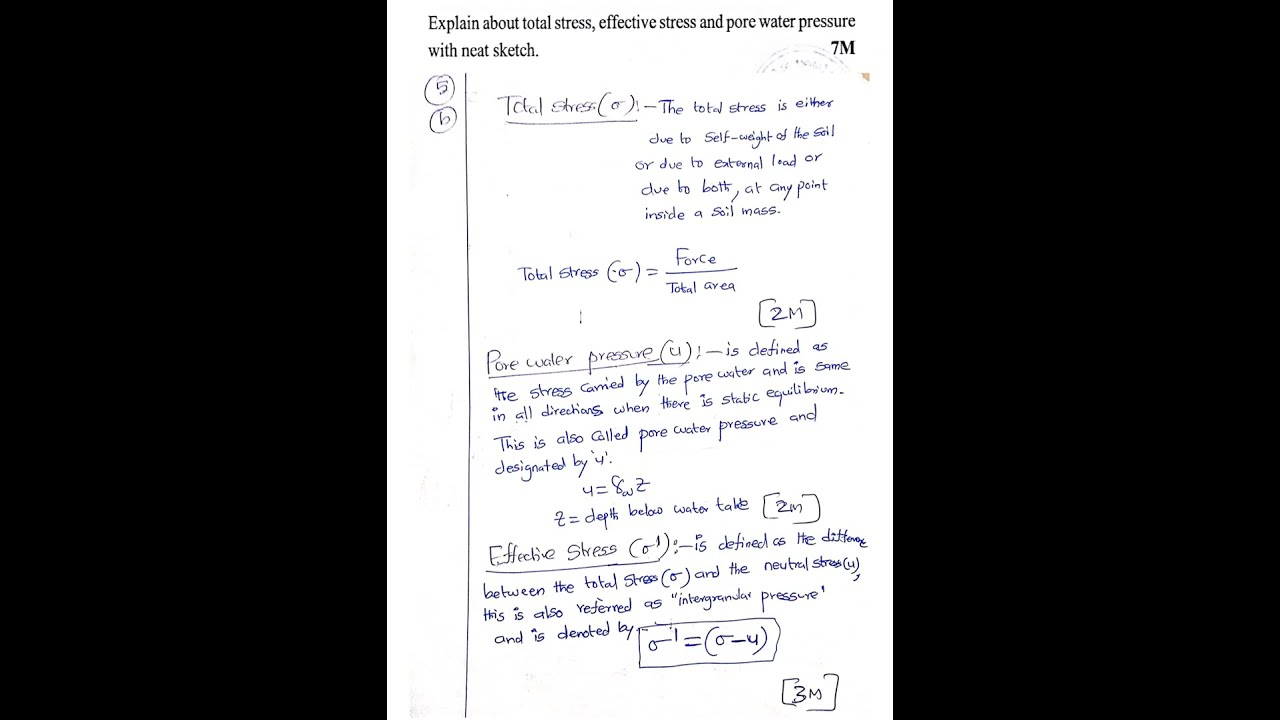 Explain about total stress, effective stress and pore water pressure
with neat sketch. 7M
5
b
Total stress (σ) :- The total stress is either
due to self-weight of the soil
or due to external load or
due to both, at any point
inside a soil mass.
Total stress (σ) = Force
Total area
[2M]
Pore water pressure (u) :- is defined as
the stress carried by the pore water and is same
in all directions when there is static equilibrium.
This is also called pore water pressure and
designated by 'u'.
u = γw z
z = depth below water table [2M]
Effective Stress (σ') :- is defined as the difference
between the total stress (σ) and the neutral stress (u),
this is also referred as "intergranular pressure"
and is denoted by
σ' = (σ-u)
[3M]